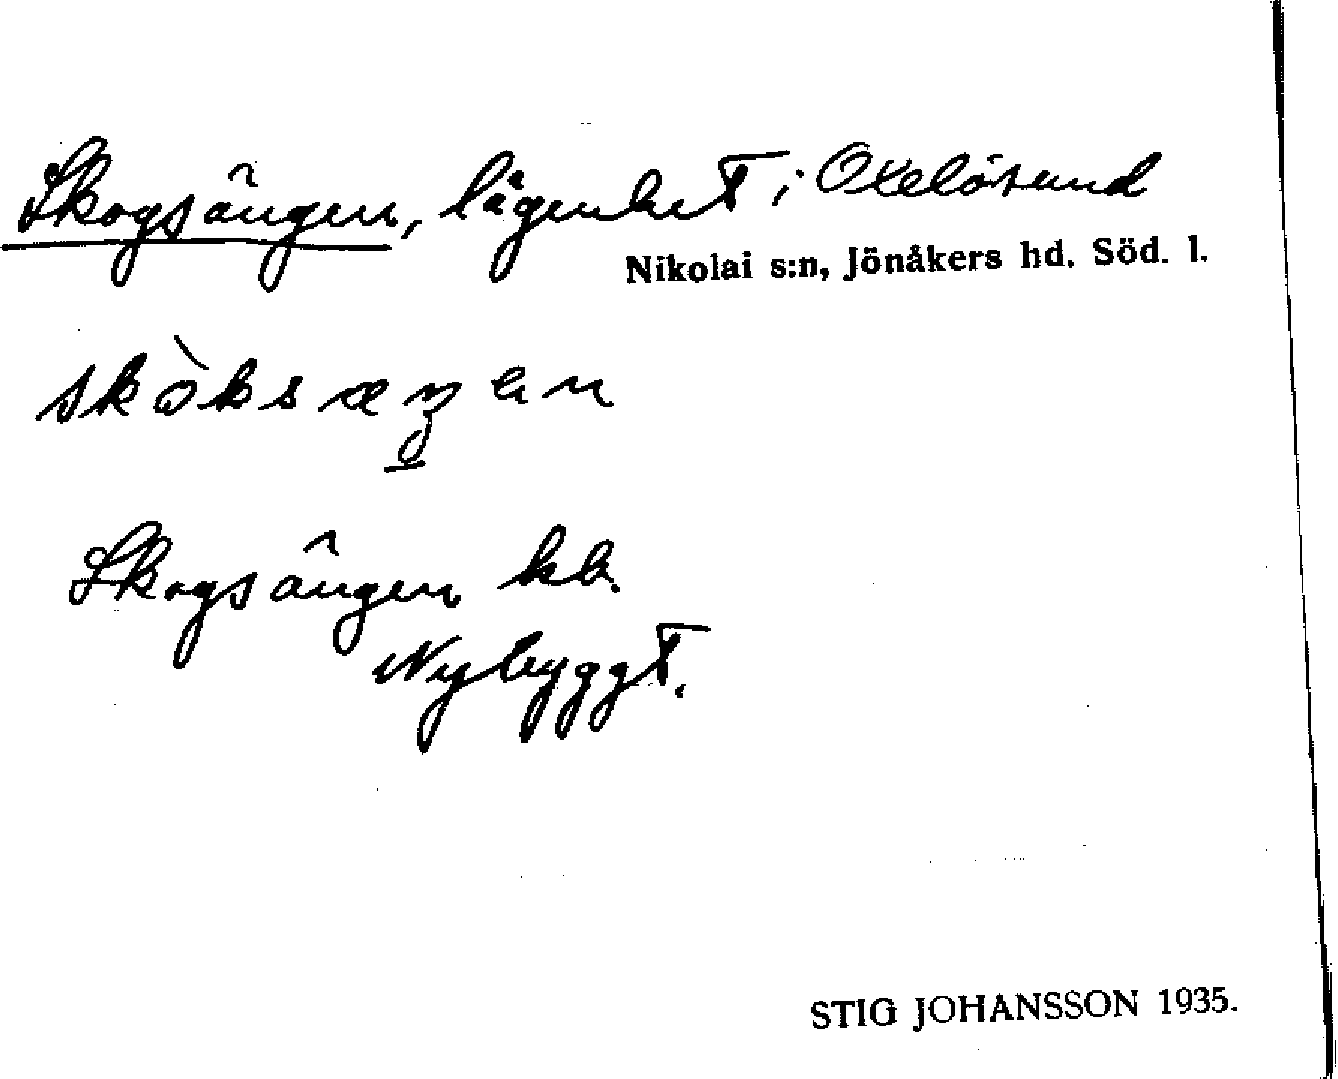 Skogsängen, lägenhet i Oxelösund
Nikolai s:n, Jönåkers hd. Söd. l.
skòksæŋen
Skogsängen kb.
Nybyggt.
STIG JOHANSSON 1935.